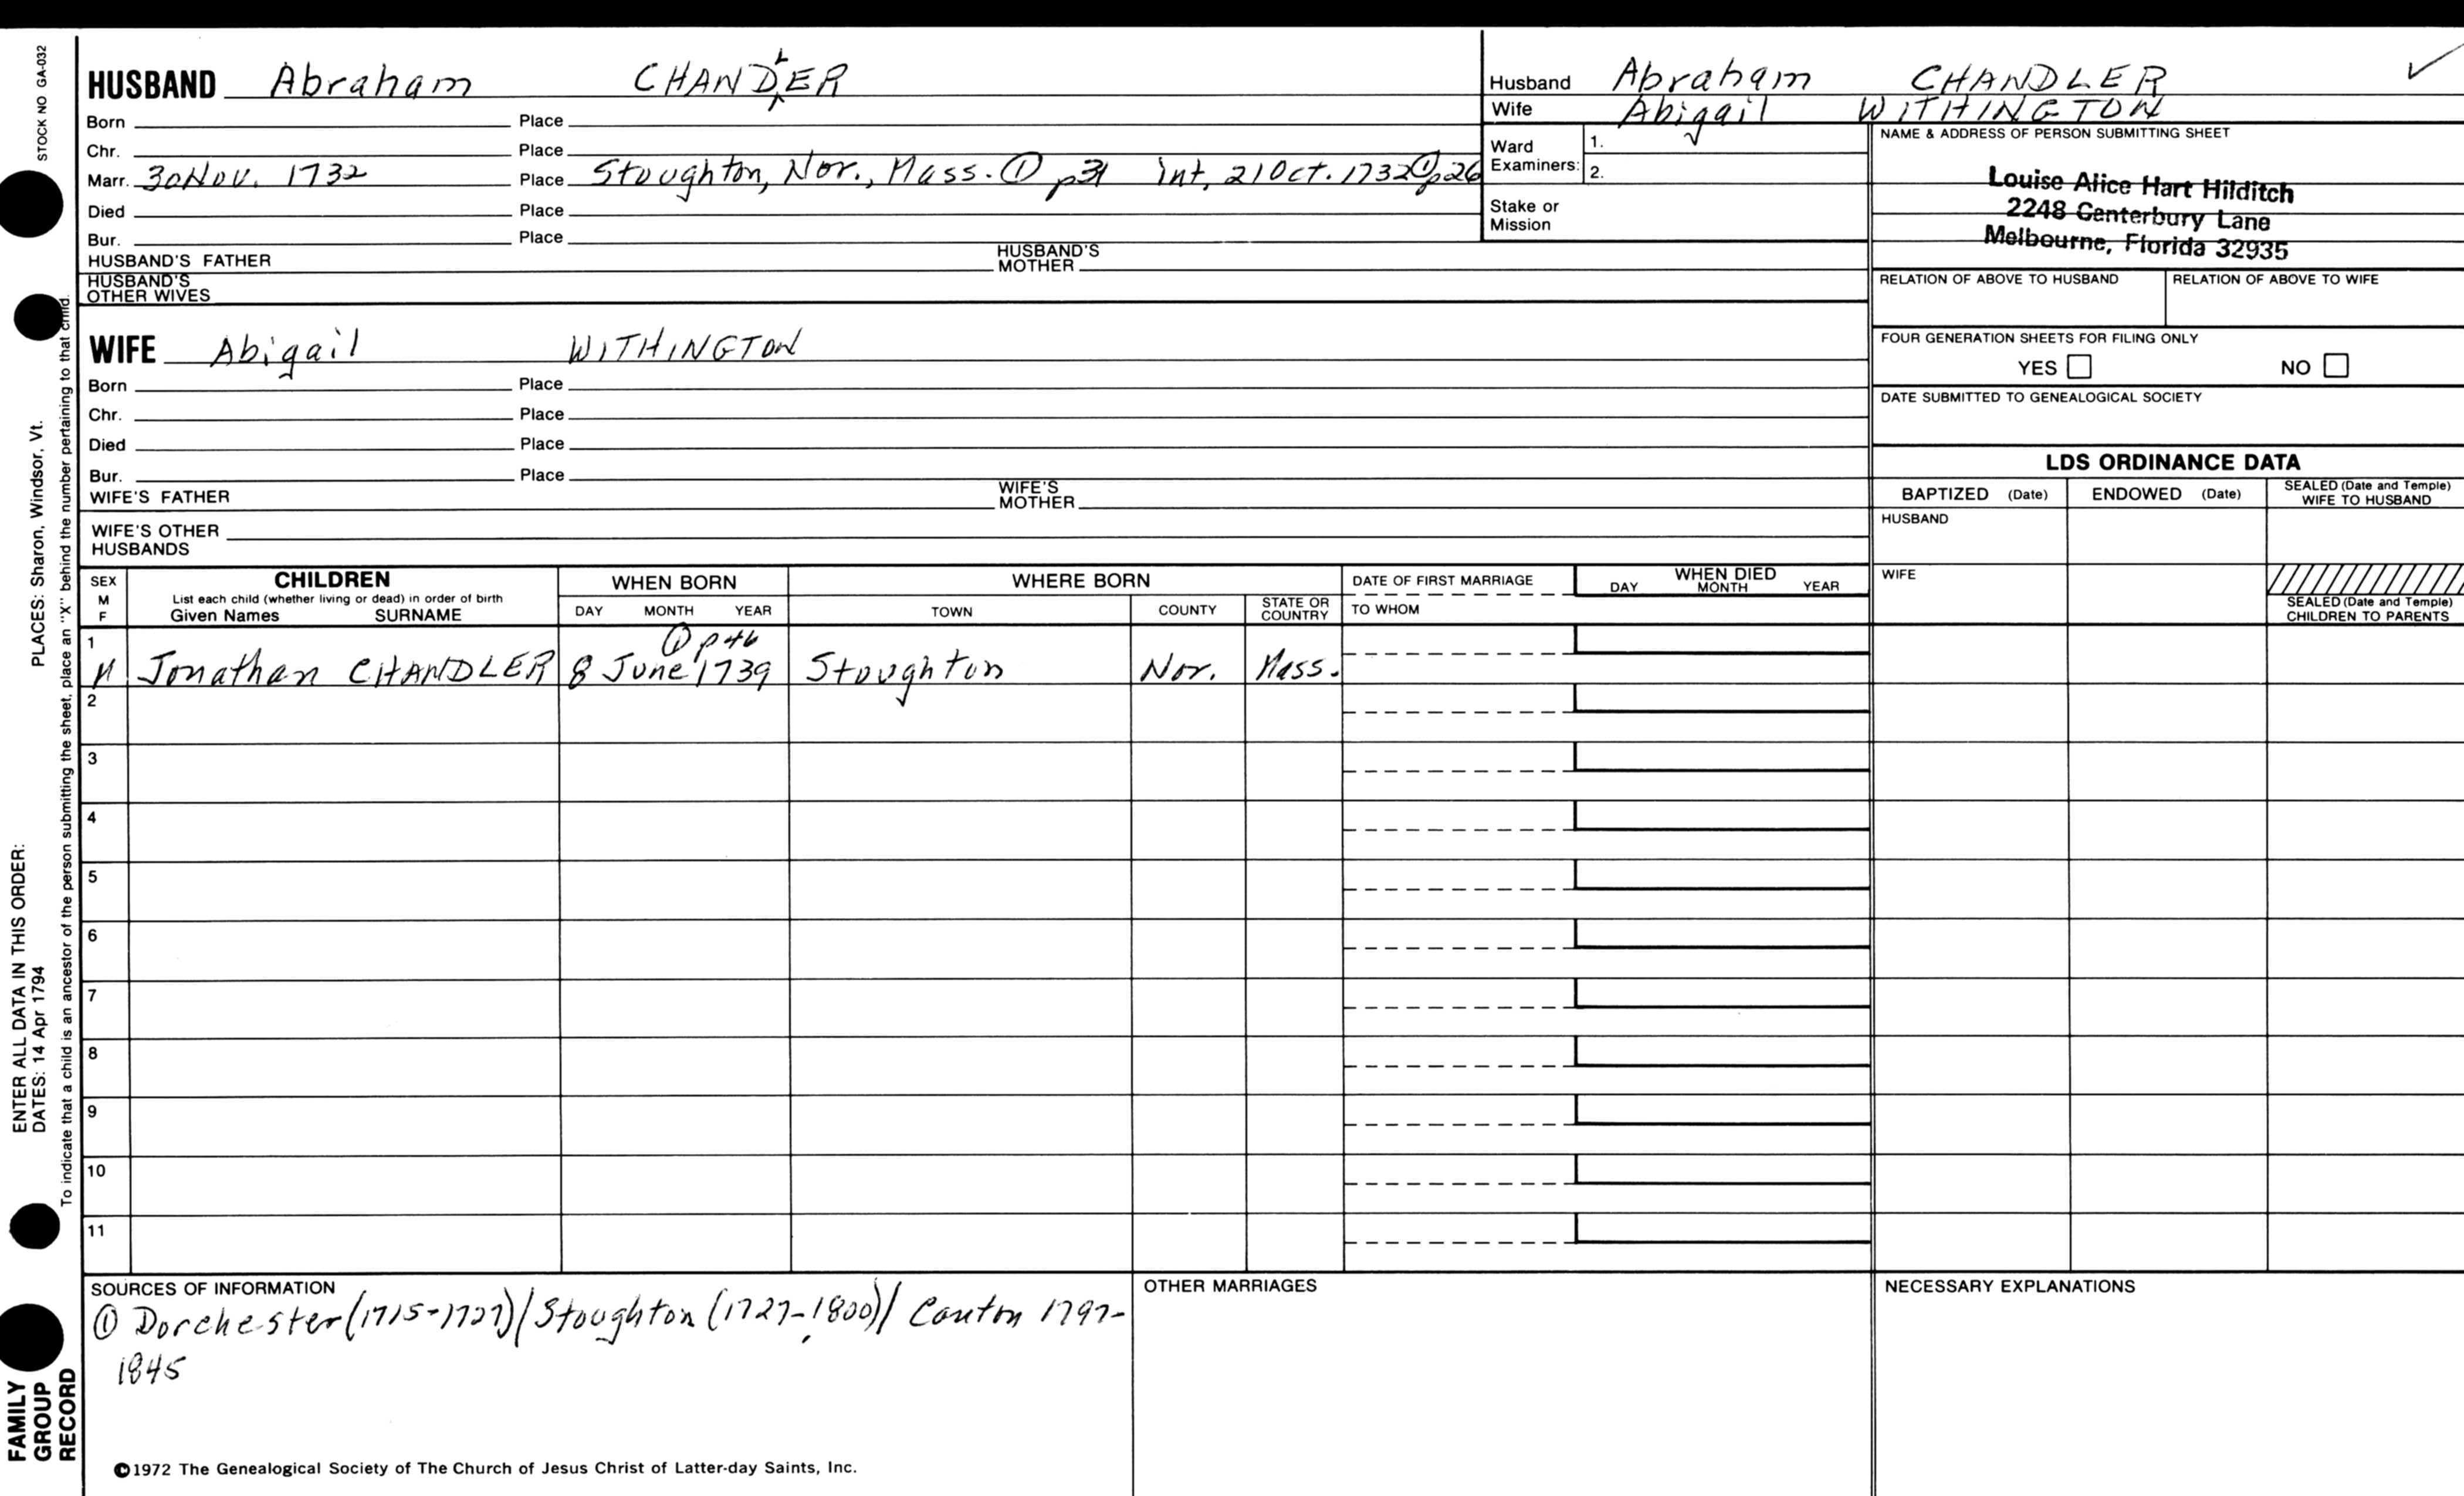 STOCK NO GA-032
PLACES: Sharon, Windsor, Vt.
ENTER ALL DATA IN THIS ORDER:
DATES: 14 Apr 1794
To indicate that a child is an ancestor of the person submitting the sheet, place an "X" behind the number pertaining to that child.
FAMILY
GROUP
RECORD
HUSBAND Abraham CHANDLER
Born Place
Chr. Place
Marr. 30 Nov. 1732 Place Stoughton, Nor., Mass. ① p31 int. 21 Oct. 1732 ① p26
Died Place
Bur. Place
HUSBAND'S FATHER HUSBAND'S MOTHER
HUSBAND'S
OTHER WIVES
WIFE Abigail WITHINGTON
Born Place
Chr. Place
Died Place
Bur. Place
WIFE'S FATHER WIFE'S MOTHER
WIFE'S OTHER
HUSBANDS
Husband Abraham CHANDLER ✓
Wife Abigail WITHINGTON
Ward
Examiners:
1.
2.
Stake or
Mission
NAME & ADDRESS OF PERSON SUBMITTING SHEET
Louise Alice Hart Hilditch
2248 Canterbury Lane
Melbourne, Florida 32935
RELATION OF ABOVE TO HUSBAND RELATION OF ABOVE TO WIFE
FOUR GENERATION SHEETS FOR FILING ONLY
YES NO
DATE SUBMITTED TO GENEALOGICAL SOCIETY
LDS ORDINANCE DATA
BAPTIZED (Date) ENDOWED (Date) SEALED (Date and Temple)
WIFE TO HUSBAND
HUSBAND
WIFE
SEALED (Date and Temple)
CHILDREN TO PARENTS
SEX
M
F
CHILDREN
List each child (whether living or dead) in order of birth
Given Names SURNAME
WHEN BORN
DAY MONTH YEAR
WHERE BORN
TOWN COUNTY STATE OR COUNTRY
DATE OF FIRST MARRIAGE
TO WHOM
WHEN DIED
DAY MONTH YEAR
1
① p46
M Jonathan CHANDLER 8 June 1739 Stoughton Nor. Mass.
2
3
4
5
6
7
8
9
10
11
SOURCES OF INFORMATION
① Dorchester (1715-1727)/Stoughton (1727-1800)/ Canton 1797-
1845
OTHER MARRIAGES
NECESSARY EXPLANATIONS
©1972 The Genealogical Society of The Church of Jesus Christ of Latter-day Saints, Inc.